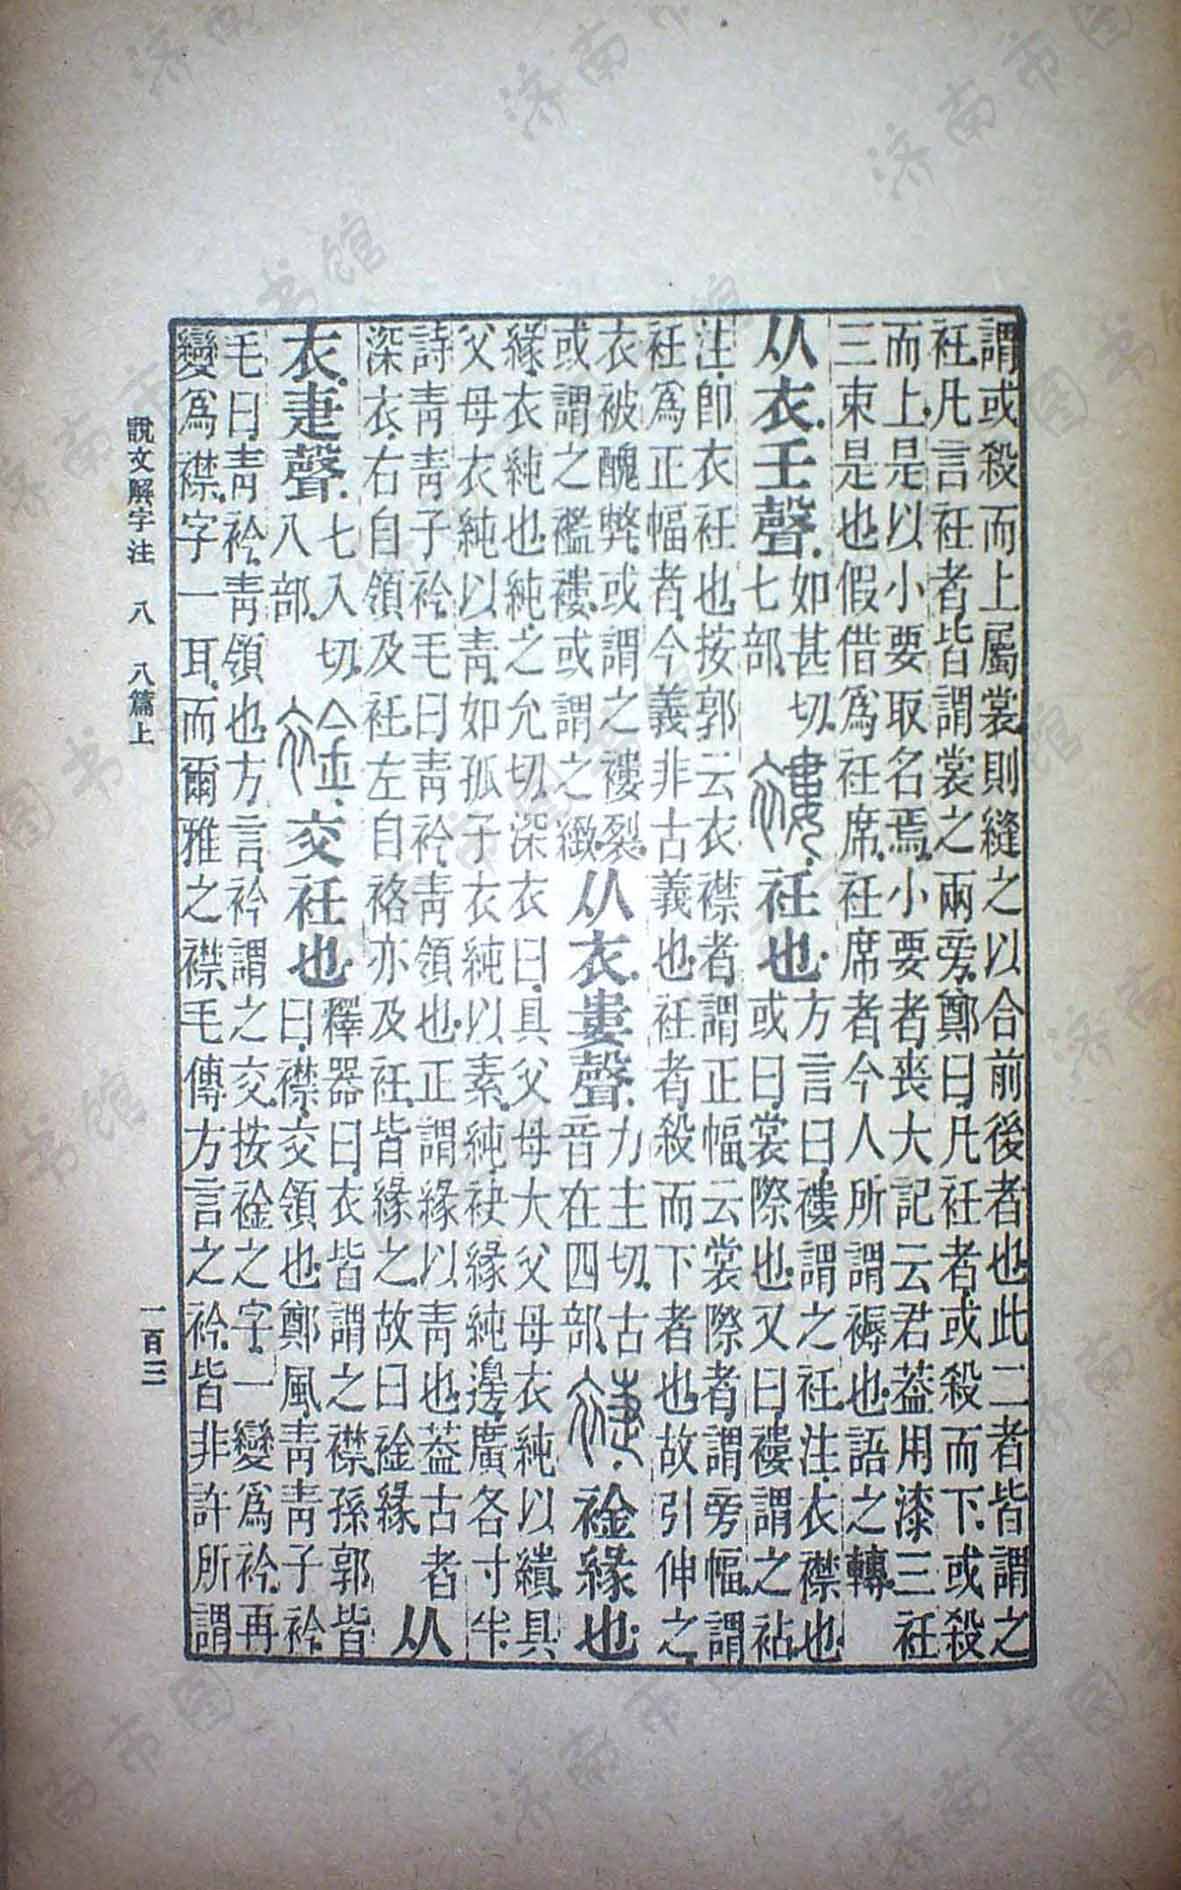 謂或殺而上屬裳則縫之以合前後者也此二者皆謂之
衽凡言衽者皆謂裳之兩旁鄭曰凡衽者或殺而下或殺
而上是以小要取名焉小要者喪大記云君葢用漆三衽
三束是也假借爲衽席衽席者今人所謂褥也語之轉
从衣壬聲如甚切七部褸衽也方言曰褸謂之衽注衣襟也或曰裳際也又曰褸謂之袩
注即衣衽也按郭云衣襟者謂正幅云裳際者謂旁幅謂
衽爲正幅者今義非古義也衽者殺而下者也故引伸之
衣被醜弊或謂之褸裂或謂之襤褸或謂之緻从衣婁聲力主切古音在四部𧚨䘳緣也
緣衣純也純之允切深衣曰具父母大父母衣純以繢具
父母衣純以靑如孤子衣純以素純袂緣純邊廣各寸半
詩靑靑子衿毛曰靑衿靑領也正謂緣以靑也葢古者
深衣右自領及衽左自袼亦及衽皆緣之故曰䘳緣从
衣疌聲七入切八部䘳交衽也釋器曰衣皆謂之襟孫郭皆曰襟交領也鄭風靑靑子衿
毛曰靑衿靑領也方言衿謂之交按䘳之字一變爲衿再
變爲襟字一耳而爾雅之襟毛傳方言之衿皆非許所謂
說文解字注 八 八篇上
一百三
济南市图书馆